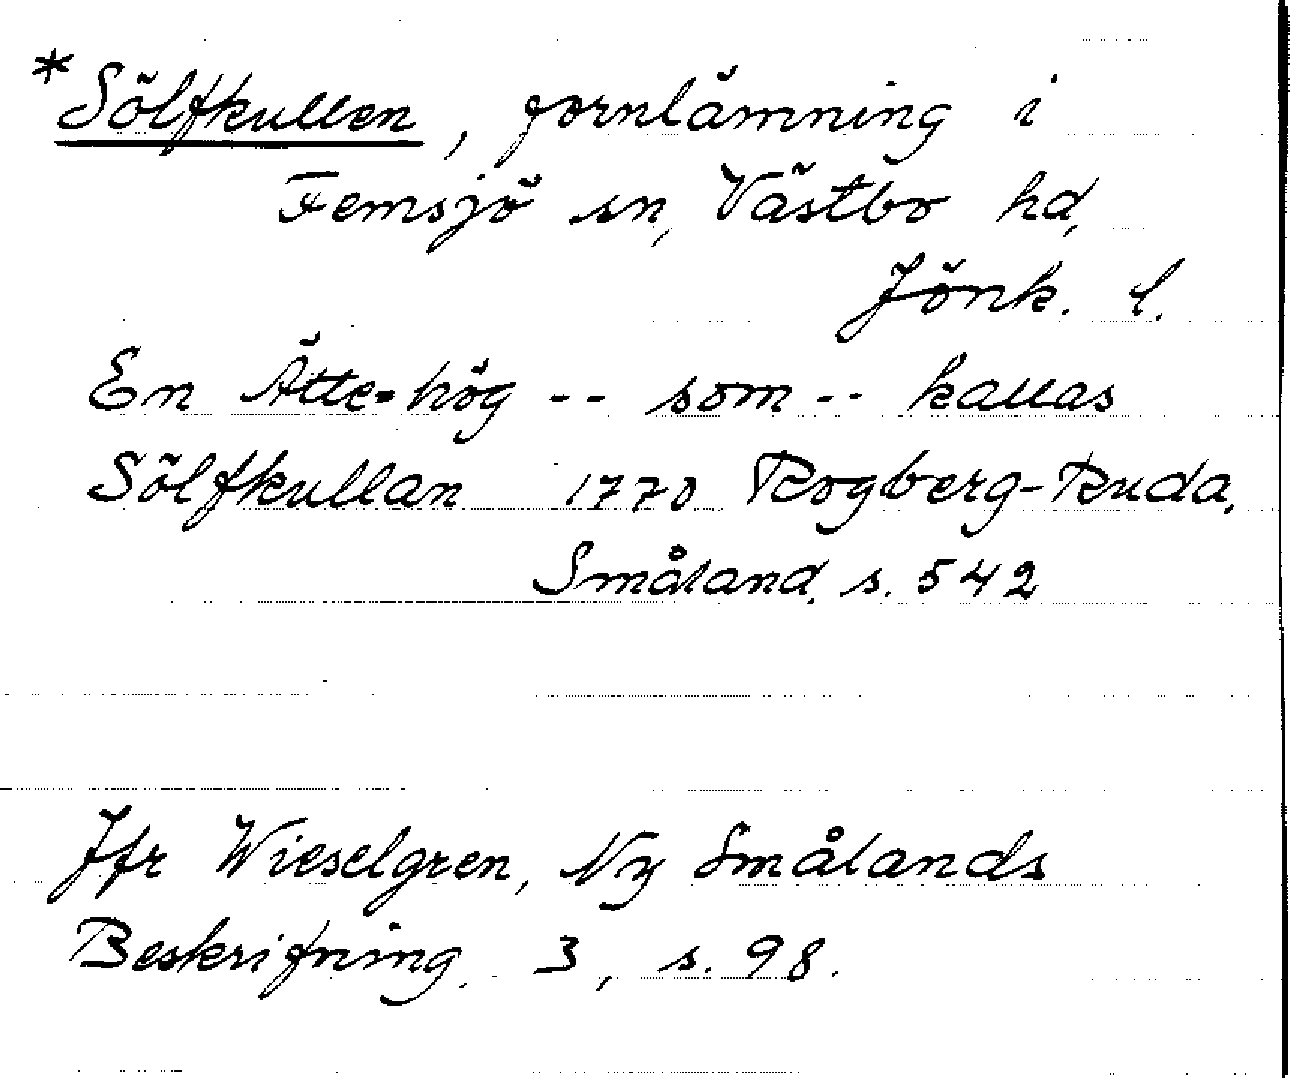 *Sölfkullen, fornlämning i
Femsjö sn, Västbo hd,
Jönk. l.
En Ätte-hög -- som -- kallas
Sölfkullan 1770 Rogberg-Ruda,
Småland, s. 542
Jfr Wieselgren, Ny Smålands
Beskrifning, 3, s. 98.